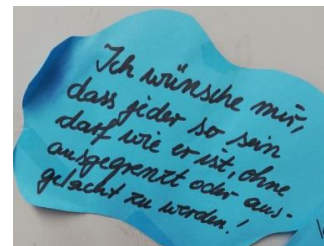 Ich wünsche mir,
dass jeder so sein
darf wie er ist, ohne
ausgegrenzt oder aus-
gelacht zu werden!